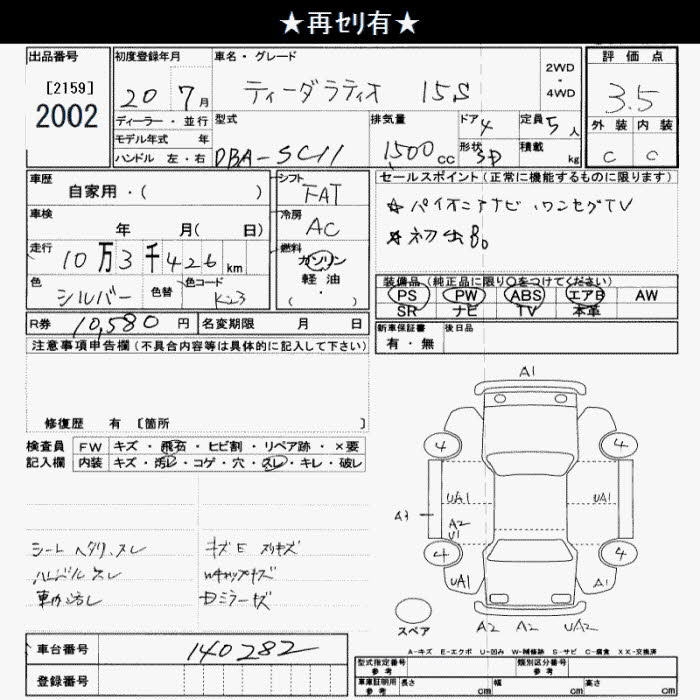 ★再セリ有★
出品番号 初度登録年月 車名・グレード 2WD・4WD 評価点
[2159] 2002
20 7月 ティーダラティオ 15S 3.5
ディーラー・並行 型式 排気量 ドア 4 定員 5人 外装 内装
モデル年式 年 DBA-SC11 1500cc 形状 SD 積載 kg C C
ハンドル 左・右
車歴 自家用・( ) シフト FAT セールスポイント(正常に機能するものに限ります)
車検 年 月( 日) 冷房 AC ☆パイオニアナビ・ワンセグTV
走行 10万3千426km 燃料 ガソリン 軽油・( ) ☆初出品。
色 シルバー 色替 色コード K23
装備品(純正品に限り〇をつけてください)
PS PW ABS エアB AW
SR ナビ TV 本革
R券 10,580円 名変期限 月 日 新車保証書 有・無 後日品
注意事項申告欄(不具合内容等は具体的に記入して下さい)
修復歴 有 [箇所 ]
検査員 FW キズ・飛石・ヒビ割・リペア跡・×要
記入欄 内装 キズ・汚レ・コゲ・穴・スレ・キレ・破レ
シートヘタリ、スレ キズE スリキズ
ハンドルスレ Wキャップキズ
車内汚レ Dミラーキズ
A1
4 4
UA1 UA1
A3 A2
U1
4 4
UA1 A1
スペア A2 A2 UA2
A-キズ E-エクボ U-凹み W-補修跡 S-サビ C-腐食 XX-交換済
車台番号 140282
登録番号
型式指定番号 参考 類別区分番号 参考
車庫証明用 参考 長さ cm 幅 cm 高さ cm